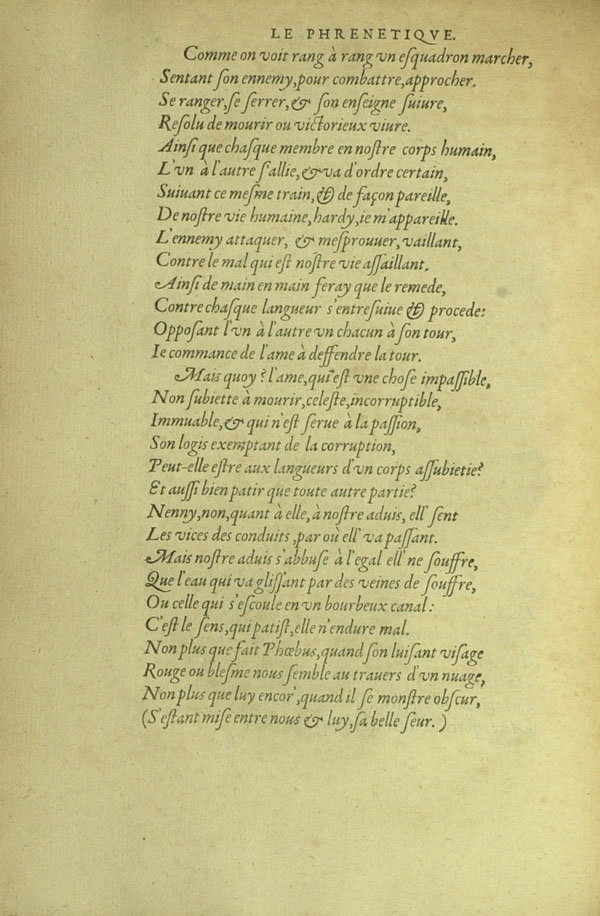 LE PHRENETIQVE.
Comme on voit rang à rang vn eſquadron marcher,
Sentant ſon ennemy, pour combattre, approcher.
Se ranger, ſe ſerrer, & ſon enſeigne ſuiure,
Reſolu de mourir ou victorieux viure.
Ainſi que chaſque membre en noſtre corps humain,
L'vn à l'autre s'allie, & va d'ordre certain,
Suiuant ce meſme train, & de façon pareille,
De noſtre vie humaine, hardy, ie m'appareille.
L'ennemy attaquer, & meſprouuer, vaillant,
Contre le mal qui eſt noſtre vie aſſaillant.
Ainſi de main en main feray que le remede,
Contre chaſque langueur s'entreſuiue & procede:
Oppoſant l'vn à l'autre vn chacun à ſon tour,
Ie commance de l'ame à deffendre la tour.
Mais quoy? l'ame, qui eſt vne choſe impaſſible,
Non ſubiette à mourir, celeſte, incorruptible,
Immuable, & qui n'eſt ſerue à la paſſion,
Son logis exemptant de la corruption,
Peut-elle eſtre aux langueurs d'vn corps aſſubietie?
Et auſſi bien patir que toute autre partie?
Nenny, non, quant à elle, à noſtre aduis, ell' ſent
Les vices des conduits, par où ell' va paſſant.
Mais noſtre aduis s'abbuſe à l'egal ell' ne ſouffre,
Que l'eau qui va gliſſant par des veines de ſouffre,
Ou celle qui s'eſcoule en vn bourbeux canal:
C'eſt le ſens, qui patiſt, elle n'endure mal.
Non plus que fait Phœbus, quand ſon luiſant viſage
Rouge ou bleſme nous ſemble au trauers d'vn nuage,
Non plus que luy encor', quand il ſe monſtre obſcur,
(S'eſtant miſe entre nous & luy, ſa belle ſeur.)